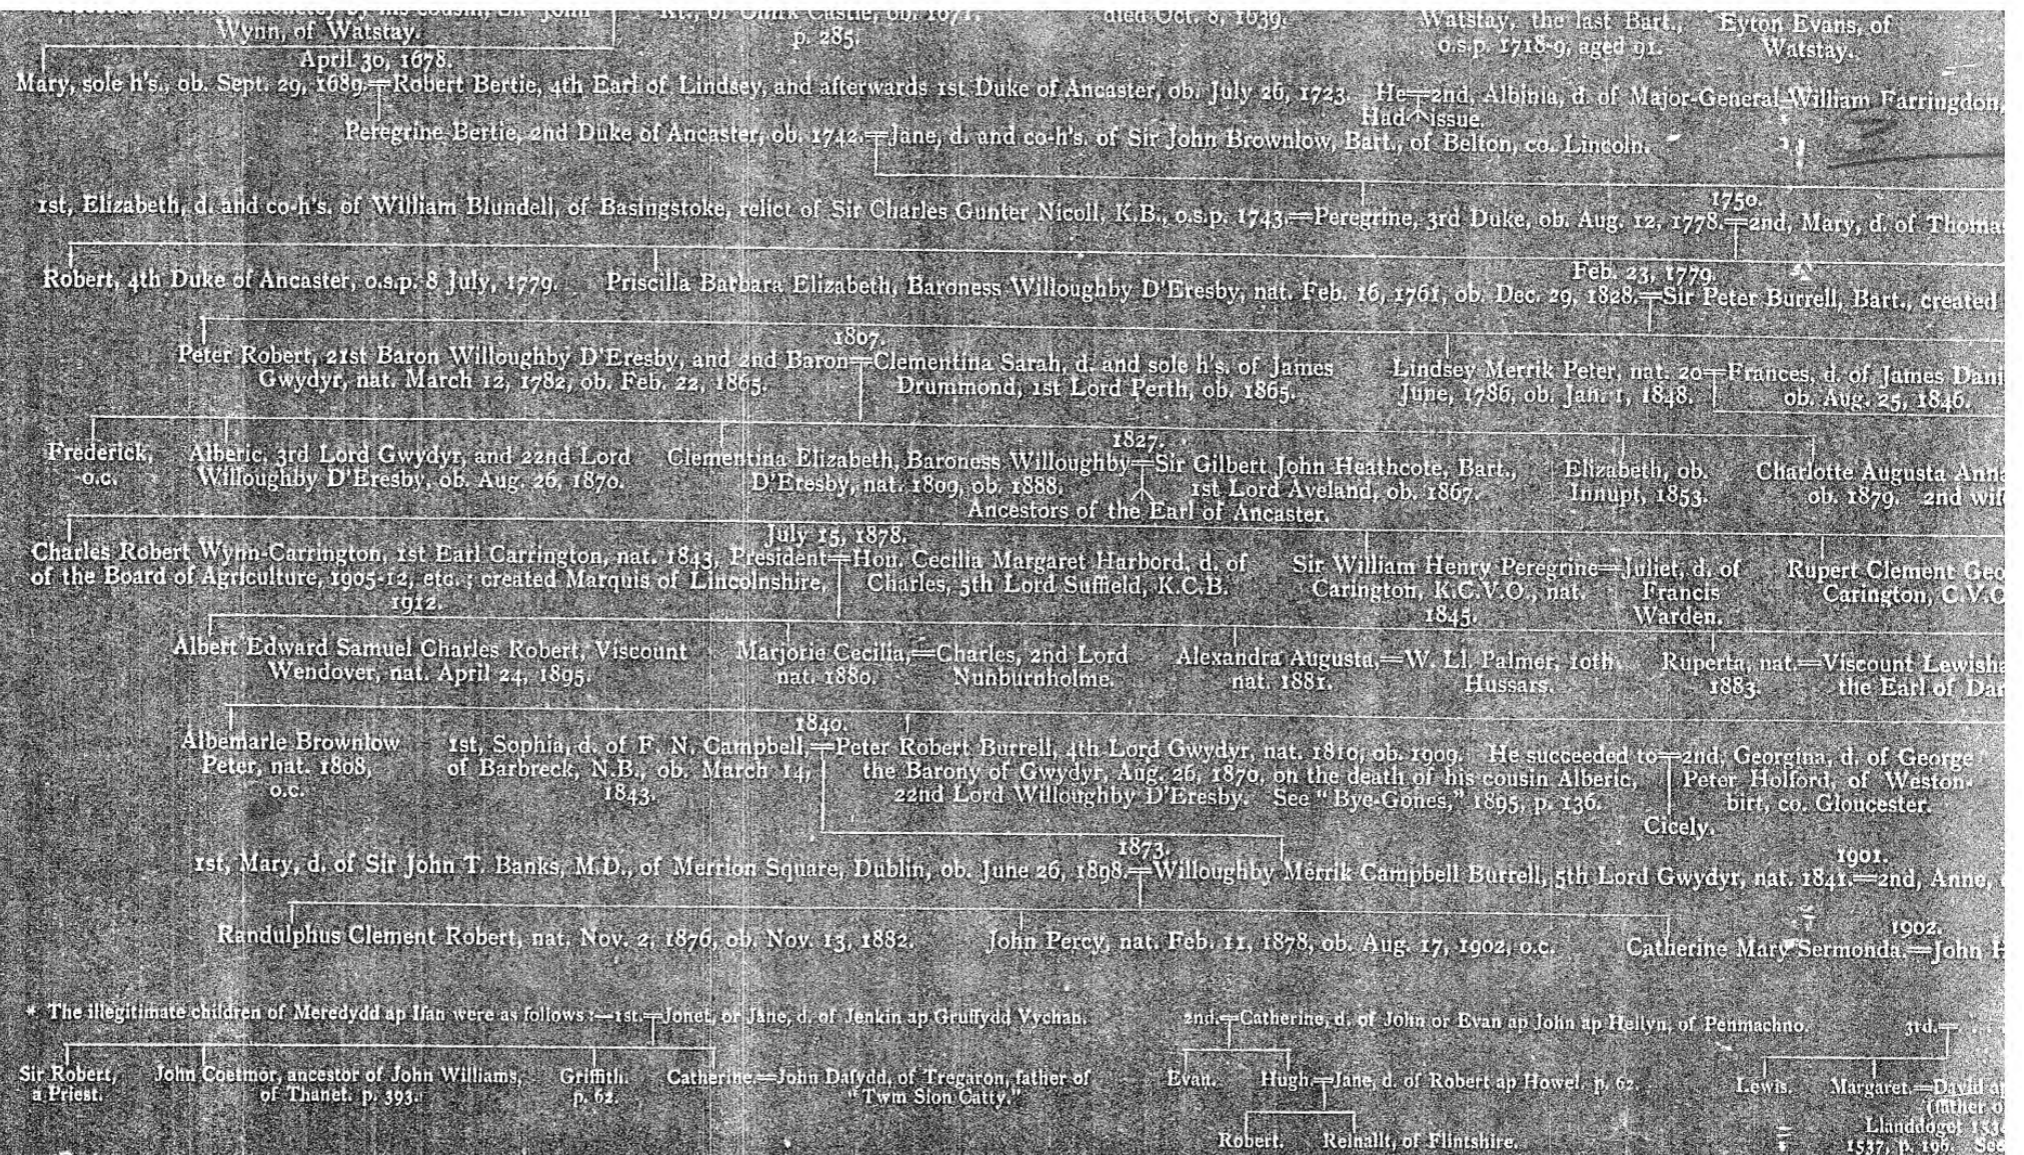 Wynn, of Watstay.
p. 285.
died Oct. 8, 1639.
Watstay, the last Bart.,
o.s.p. 1718-9, aged 91.
Eyton Evans, of
Watstay.
April 30, 1678.
Mary, sole h's., ob. Sept. 29, 1689.=Robert Bertie, 4th Earl of Lindsey, and afterwards 1st Duke of Ancaster, ob. July 26, 1723. He=2nd, Albinia, d. of Major-General William Farringdon,
Had issue.
Peregrine Bertie, 2nd Duke of Ancaster, ob. 1742.=Jane, d. and co-h's. of Sir John Brownlow, Bart., of Belton, co. Lincoln.
1750.
1st, Elizabeth, d. and co-h's. of William Blundell, of Basingstoke, relict of Sir Charles Gunter Nicoll, K.B., o.s.p. 1743.=Peregrine, 3rd Duke, ob. Aug. 12, 1778.=2nd, Mary, d. of Thomas
Feb. 23, 1779.
Robert, 4th Duke of Ancaster, o.s.p. 8 July, 1779. Priscilla Barbara Elizabeth, Baroness Willoughby D'Eresby, nat. Feb. 16, 1761, ob. Dec. 29, 1828.=Sir Peter Burrell, Bart., created
1807.
Peter Robert, 21st Baron Willoughby D'Eresby, and 2nd Baron=Clementina Sarah, d. and sole h's. of James
Gwydyr, nat. March 12, 1782, ob. Feb. 22, 1865. Drummond, 1st Lord Perth, ob. 1865.
Lindsey Merrik Peter, nat. 20=Frances, d. of James Dani
June, 1786, ob. Jan. 1, 1848. ob. Aug. 25, 1846.
Frederick,
o.c.
Alberic, 3rd Lord Gwydyr, and 22nd Lord
Willoughby D'Eresby, ob. Aug. 26, 1870.
1827.
Clementina Elizabeth, Baroness Willoughby=Sir Gilbert John Heathcote, Bart.,
D'Eresby, nat. 1809, ob. 1888. 1st Lord Aveland, ob. 1867.
Ancestors of the Earl of Ancaster.
Elizabeth, ob.
Innupt, 1853.
Charlotte Augusta Anna
ob. 1879. 2nd wife
July 15, 1878.
Charles Robert Wynn-Carrington, 1st Earl Carrington, nat. 1843, President=Hon. Cecilia Margaret Harbord, d. of
of the Board of Agriculture, 1905-12, etc.; created Marquis of Lincolnshire, Charles, 5th Lord Suffield, K.C.B.
1912.
Sir William Henry Peregrine=Juliet, d. of
Carington, K.C.V.O., nat. Francis
1845. Warden.
Rupert Clement Geo
Carington, C.V.O
Albert Edward Samuel Charles Robert, Viscount
Wendover, nat. April 24, 1895.
Marjorie Cecilia,=Charles, 2nd Lord
nat. 1880. Nunburnholme.
Alexandra Augusta,=W. Ll. Palmer, 10th
nat. 1881. Hussars.
Ruperta, nat.=Viscount Lewisha
1883. the Earl of Dar
Albemarle Brownlow
Peter, nat. 1808,
o.c.
1840.
1st, Sophia, d. of F. N. Campbell,=Peter Robert Burrell, 4th Lord Gwydyr, nat. 1810, ob. 1909. He succeeded to=2nd, Georgina, d. of George
of Barbreck, N.B., ob. March 14, the Barony of Gwydyr, Aug. 26, 1870, on the death of his cousin Alberic, Peter Holford, of Weston-
1843. 22nd Lord Willoughby D'Eresby. See "Bye-Gones," 1895, p. 136. birt, co. Gloucester.
Cicely.
1873.
1901.
1st, Mary, d. of Sir John T. Banks, M.D., of Merrion Square, Dublin, ob. June 26, 1898.=Willoughby Merrik Campbell Burrell, 5th Lord Gwydyr, nat. 1841.=2nd, Anne,
1902.
Randulphus Clement Robert, nat. Nov. 2, 1876, ob. Nov. 13, 1882. John Percy, nat. Feb. 11, 1878, ob. Aug. 17, 1902, o.c. Catherine Mary Sermonda.=John H
* The illegitimate children of Meredydd ap Ifan were as follows:—1st.=Jonet, or Jane, d. of Jenkin ap Gruffydd Vychan. 2nd.=Catherine, d. of John or Evan ap John ap Hellyn, of Penmachno. 3rd.=
Sir Robert,
a Priest.
John Coetmor, ancestor of John Williams,
of Thanet. p. 393.
Griffith.
p. 62.
Catherine.=John Dafydd, of Tregaron, father of
"Twm Sion Catty."
Evan. Hugh.=Jane, d. of Robert ap Howel. p. 62.
Lewis. Margaret.=David a
(father o
Llanddoget 153
1537, p. 196. See
Robert. Reinallt, of Flintshire.